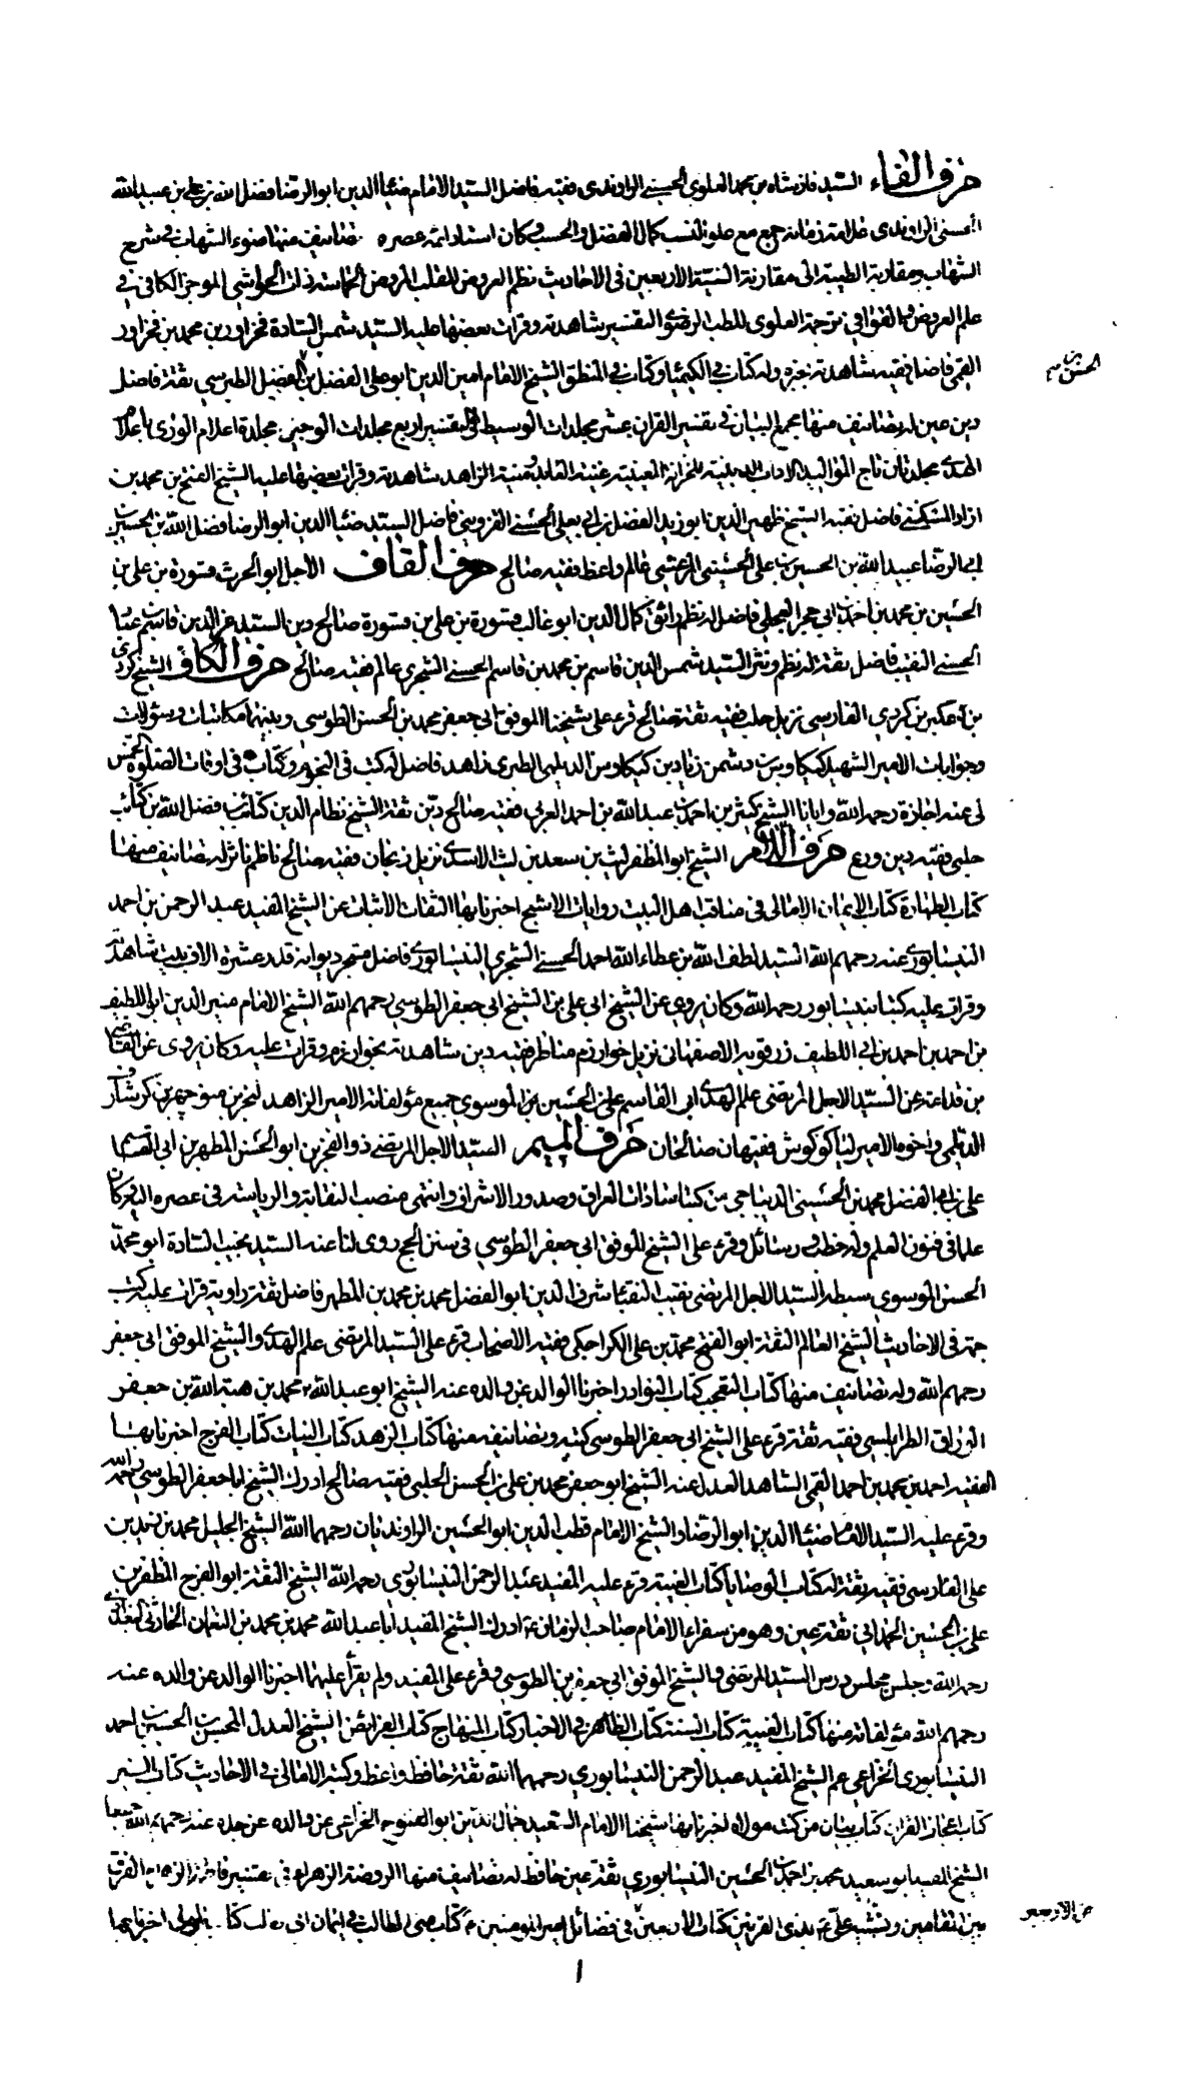 حرف الفاء السيد فاذشاه بن محمد العلوي الحسني الراوندي فقيه فاضل السيد الامام ضياء الدين ابو الرضا فضل الله بن علي بن عبيد الله
الحسني الراوندي علامة زمانه جمع مع علو النسب كمال الفضل والحسب وكان استاد ائمة عصره تصانيف منها ضوء الشهاب في شرح
الشهاب ومقاربة الطيبة الى مقارنة النية الاربعين في الاحاديث نظم العروض للقلب المروض الحماسة ذات الحواشي الموجز الكافي في
علم العروض والقوافي ترجمة العلوي للطب الرضوي التفسير شاهدته وقرات بعضها عليه السيد شمس السادة فخراور بن محمد بن فخراور
القمي فاضل فقيه شاهدته وله كتاب في الكيميا وكتاب في المنطق الشيخ الامام امين الدين ابو علي الفضل بن الفضل الطبرسي ثقة فاضل
الحسن بن
دين عين له تصانيف منها مجمع البيان في تفسير القران عشر مجلدات الوسيط في التفسير اربع مجلدات الوجيز مجلدة اعلام الورى باعلام
الهدى مجلدتان تاج المواليد الاداب الدينية للخزانة المعينية غنية العابد ومنية الزاهد شاهدته وقرات بعضها عليه الشيخ الفتح بن محمد بن
ازاد المسكني فاضل فقيه الشيخ ظهير الدين ابو زيد الفضل بن ابي يعلى الحسني القزويني فاضل السيد ضيا الدين ابو الرضا فضل الله بن الحسين بن
ابي الرضا عبيد الله بن الحسين بن علي الحسيني المرعشي عالم واعظ فقيه صالح حرف القاف الاجل ابو الحرث قسورة بن علي بن
الحسين بن محمد بن احمد بن ابي حجر العجلي فاضل له نظم رائق كمال الدين ابو غالب قسورة بن علي بن قسورة صالح دين السيد عز الدين قاسم بن عباد
الحسني النقيب فاضل ثقة له نظم ونثر السيد شمس الدين قاسم بن محمد بن قاسم الحسني الشجري عالم فقيه صالح حرف الكاف الشيخ كردي
بن عكبر بن كردي الفارسي نزيل حلب فقيه ثقة صالح قرء على شيخنا الموفق ابي جعفر محمد بن الحسن الطوسي وبينهما مكاتبات وسؤلات
وجوابات الامير الشهيد كيكاوس بن دشمن زيار بن كيكاوس الديلمي الطبري زاهد فاضل له كتب في النجوم وكتاب في اوقات الصلوة الخمس
لي عنه اجازة رحمه الله وايانا الشيخ كثير بن احمد بن عبد الله بن احمد العربي فقيه صالح دين ثقة الشيخ نظام الدين كتائب فضل الله بن كتائب
حلبي فقيه دين ورع حرف اللام الشيخ ابو المظفر ليث بن سعد بن ليث الاسدي نزيل زنجان فقيه صالح ناظم ناثر له تصانيف منها
كتاب الطهارة كتاب الايمان الامالي في مناقب اهل البيت روايات الاشج اخبرنا بها الثقات الاثبات عن الشيخ المفيد عبد الرحمن بن احمد
النيسابوري عنه رحمهم الله السيد لطف الله بن عطاء الله احمد الحسني الشجري النيسابوري فاضل متبحر ديوانه قدر عشرة الاف بيت شاهدته
وقرات عليه كتبا بنيسابور رحمه الله وكان يروي عن الشيخ ابي علي بن الشيخ ابي جعفر الطوسي رحمهم الله الشيخ الامام منير الدين ابو اللطيف
بن احمد بن احمد بن ابي اللطيف زرقويه الاصفهاني نزيل خوارزم مناظر فقيه دين شاهدته بخوارزم وقرات عليه وكان يروي عن القاضي
بن قدامة عن السيد الاجل المرتضى علم الهدى ابي القاسم علي بن الحسين بن الموسوي جميع مؤلفاته الامير الزاهد لنجر بن منوجهر بن كرشاسف
الديلمي واخوه الامير لياكوكوش فقيهان صالحان حرف الميم السيد الاجل المرتضى ذو الفخرين ابو الحسن المطهر بن ابي القاسم
علي بن ابي الفضل محمد بن الحسيني الديباجي من كبار سادات العراق وصدور الاشراف وانتهى منصب النقابة والرياسة في عصره اليه وكان
علما في فنون العلم وله خطب ورسائل وقرء على الشيخ الموفق ابي جعفر الطوسي في سنن الحج روى لنا عنه السيد نجيب السادة ابو محمد
الحسن الموسوي سبطه السيد الاجل المرتضى نقيب النقباء شرف الدين ابو الفضل محمد بن محمد بن المطهر فاضل ثقة راوية قرات عليه كتب
جمة في الاحاديث الشيخ العالم الثقة ابو الفتح محمد بن علي الكراجكي فقيه الاصحاب قرء على السيد المرتضى علم الهدى والشيخ الموفق ابي جعفر
رحمهم الله وله تصانيف منها كتاب التعجب كتاب النوادر اخبرنا الوالد عن والده عنه الشيخ ابو عبد الله محمد بن هبة الله بن جعفر
الوراق الطرابلسي فقيه ثقة قرء على الشيخ ابي جعفر الطوسي كتبه وتصانيفه منها كتاب الزهد كتاب النيات كتاب الفرج اخبرنا بها
الفقيه احمد بن محمد بن احمد القمي الشاهد العدل عنه الشيخ ابو جعفر محمد بن علي بن الحسن الحلبي فقيه صالح ادرك الشيخ ابا جعفر الطوسي رحمه الله
وقرء عليه السيد الامام ضيا الدين ابو الرضا والشيخ الامام قطب الدين ابو الحسين الراونديان رحمهما الله الشيخ الجليل محمد بن زيد بن
علي الفارسي فقيه ثقة له كتاب الوصايا كتاب الغيبة قرء عليه المفيد عبد الرحمن النيسابوري رحمه الله الشيخ الثقة ابو الفرج المظفر بن
علي بن الحسين الحمداني ثقة عين وهو من سفراء الامام صاحب الزمان ع ادرك الشيخ المفيد ابا عبد الله محمد بن محمد بن النعمان الحارثي البغدادي
رحمه الله وجلس مجلس درس السيد المرتضى والشيخ الموفق ابي جعفر بن الطوسي وقرء على المفيد ولم يقرأ عليهما اخبرنا الوالد عن والده عنه
رحمهم الله مؤلفاته منها كتاب الغيبة كتاب السنة كتاب الظاهر في الاخبار كتاب المنهاج كتاب الفرائض الشيخ العدل المحسن بن الحسين بن احمد
النيسابوري الخزاعي عم الشيخ المفيد عبد الرحمن النيسابوري رحمهما الله ثقة حافظ واعظ وكتبه الامالي في الاحاديث كتاب السير
كتاب اعجاز القران كتاب بيان من كنت مولاه اخبرنا بها شيخنا الامام السعيد جمال الدين ابو الفتوح الخزاعي عن والده عن جده عنه رحمهم الله جميعا
الشيخ المفيد ابو سعيد محمد بن احمد بن الحسين النيسابوري ثقة عين حافظ له تصانيف منها الروضة الزهراء في تفسير فاطمة الزهراء الفرق
بين المقامين وتشبيه علي ع بذي القرنين كتاب الاربعين في فضائل امير المؤمنين ع كتاب منى الطالب في ايمان ابي طالب كتاب المولى اخبرنا بها
١